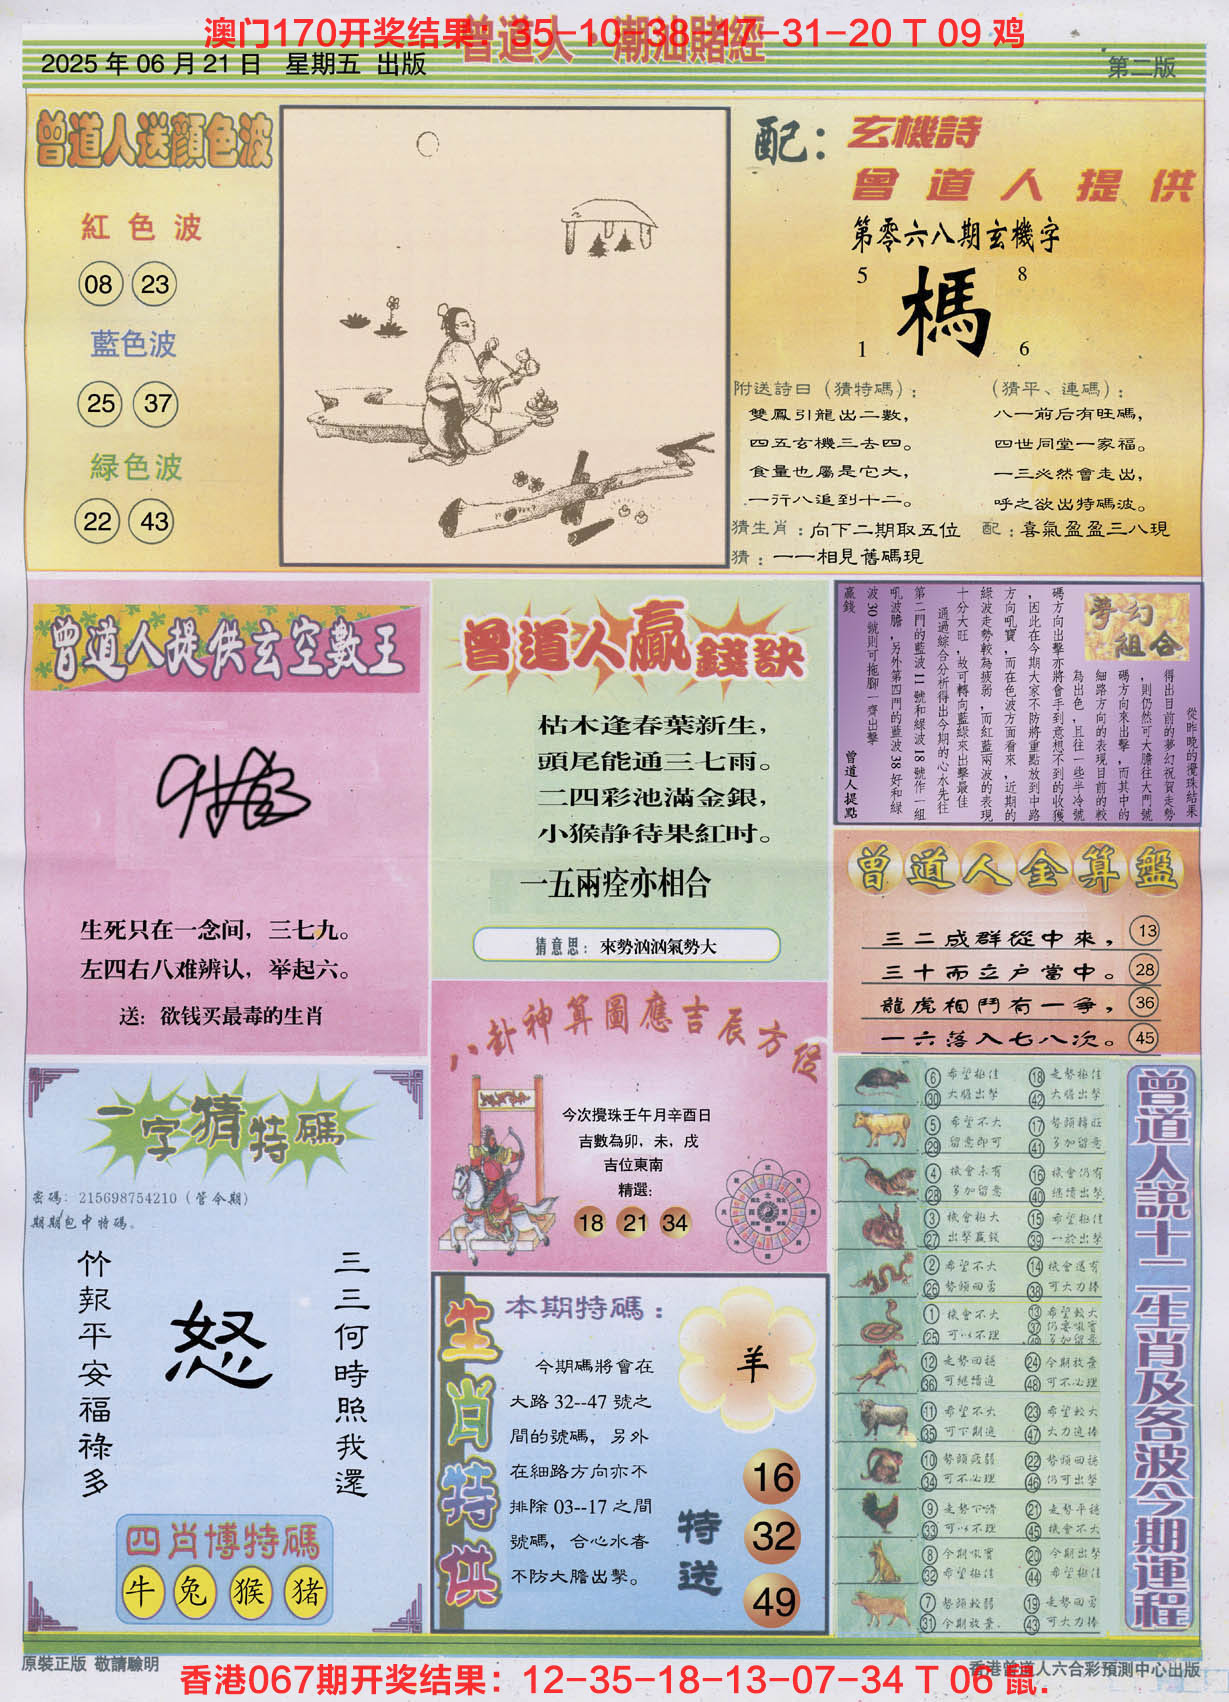 澳门170开奖结果：35-10-38-17-31-20 T 09 鸡
曾道人·潮汕賭經
2025 年 06 月 21 日 星期五 出版
第二版
曾道人送顔色波
紅色波
08 23
藍色波
25 37
緑色波
22 43
配：玄機詩
曾道人提供
第零六八期玄機字
5 8
榪
1 6
附送詩曰（猜特碼）：
雙鳳引龍出二數，
四五玄機三去四。
食量也屬是它大，
一行八追到十二。
（猜平、連碼）：
八一前后有旺碼，
四世同堂一家福。
一三必然會走出，
呼之欲出特碼波。
猜生肖：向下二期取五位 配：喜氣盈盈三八現
猜：一一相見舊碼現
曾道人提供玄空數王
生死只在一念间，三七九。
左四右八难辨认，举起六。
送：欲钱买最毒的生肖
曾道人贏錢訣
枯木逢春葉新生，
頭尾能通三七雨。
二四彩池滿金銀，
小猴静待果紅时。
一五兩痊亦相合
猜意思：來勢汹汹氣勢大
夢幻組合
從昨晚的攪珠結果
得出目前的夢幻祝賀走勢
，則仍然可大膽往大門號
碼方向來出擊，而其中的
細路方向的表現目前的較
為出色，且往一些半冷號
碼方向出擊亦將會手到意想不到的收獲
，因此在今期大家不防將重點放到中路
方向吼寶，而在色波方面看來，近期的
綠波走勢較為疲弱，而紅藍兩波的表現
十分大旺，故可轉向藍綠來出擊最佳
通過綜合分析得出今期的心水先往
第二門的藍波 11 號和綠波 18 號作一組
吼波膽，另外第四門的藍波 38 好和綠
波 30 號則可拖腳一齊出擊
贏錢
曾道人提點
曾道人金算盤
三二成群從中來， 13
三十而立户當中。 28
龍虎相鬥有一爭， 36
一六落入七八次。 45
八卦神算圖應吉辰方位
今次攪珠壬午月辛酉日
吉數為卯，未，戌
吉位東南
精選：
18 21 34
一字猜特碼
密碼：215698754210（管令期）
期期包中特碼。
竹報平安福祿多
怒
三三何時照我還
四肖博特碼
牛 兔 猴 猪
生肖特供
本期特碼：
今期碼將會在
大路 32--47 號之
間的號碼，另外
在細路方向亦不
排除 03--17 之間
號碼，合心水者
不防大膽出擊。
羊
特送
16
32
49
曾道人説十二生肖及各波今期運程
6 希望極佳 18 走勢極佳
30 大膽出擊 42 大膽出擊
5 希望不大 17 勢頭轉旺
29 留意即可 41 多加留意
4 機會未有 16 機會仍有
28 多加留意 40 繼續出擊
3 機會極大 15 希望極佳
27 出擊贏錢 39 一於出擊
2 希望不大 14 機會還有
26 勢頭回勇 38 可大力捧
1 機會不大 13 希望較大
25 可以不理 49 多加留意
12 走勢回穩 24 今期放棄
36 可繼續追 48 可不必理
11 希望不大 23 希望較大
35 可下期追 47 大力追捧
10 勢頭疲弱 22 勢頭回穩
34 可不必理 46 仍可出擊
9 走勢下滑 21 走勢平穩
33 可以不理 45 機會不大
8 今期吼實 20 今期出擊
32 希望極佳 44 希望極佳
7 勢頭較弱 19 走勢回勇
31 今期放棄 43 可大力捧
原裝正版 敬請驗明
香港曾道人六合彩預測中心出版
香港067期开奖结果：12-35-18-13-07-34 T 06 鼠.